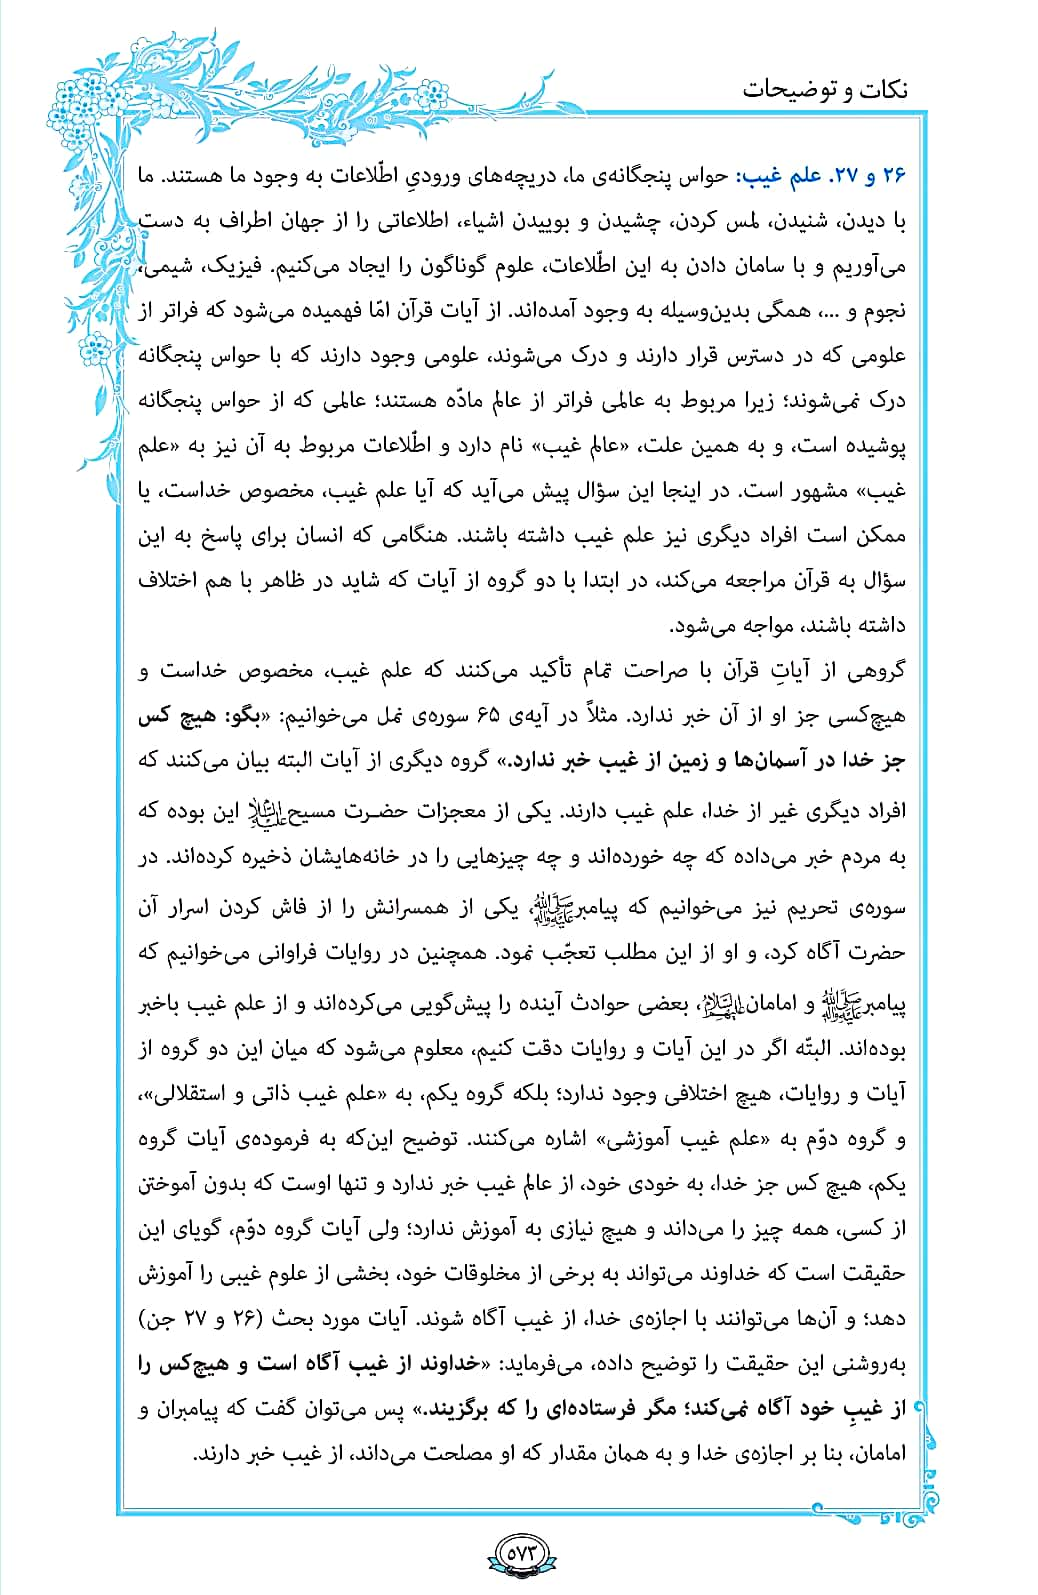 نکات و توضیحات
۲۶ و ۲۷. علم غیب: حواس پنجگانه‌ی ما، دریچه‌های ورودیِ اطّلاعات به وجود ما هستند. ما
با دیدن، شنیدن، لمس کردن، چشیدن و بوییدن اشیاء، اطلاعاتی را از جهان اطراف به دست
می‌آوریم و با سامان دادن به این اطّلاعات، علوم گوناگون را ایجاد می‌کنیم. فیزیک، شیمی،
نجوم و ...، همگی بدین‌وسیله به وجود آمده‌اند. از آیات قرآن امّا فهمیده می‌شود که فراتر از
علومی که در دسترس قرار دارند و درک می‌شوند، علومی وجود دارند که با حواس پنجگانه
درک نمی‌شوند؛ زیرا مربوط به عالمی فراتر از عالم مادّه هستند؛ عالمی که از حواس پنجگانه
پوشیده است، و به همین علت، «عالم غیب» نام دارد و اطّلاعات مربوط به آن نیز به «علم
غیب» مشهور است. در اینجا این سؤال پیش می‌آید که آیا علم غیب، مخصوص خداست، یا
ممکن است افراد دیگری نیز علم غیب داشته باشند. هنگامی که انسان برای پاسخ به این
سؤال به قرآن مراجعه می‌کند، در ابتدا با دو گروه از آیات که شاید در ظاهر با هم اختلاف
داشته باشند، مواجه می‌شود.
گروهی از آیاتِ قرآن با صراحت تمام تأکید می‌کنند که علم غیب، مخصوص خداست و
هیچ‌کسی جز او از آن خبر ندارد. مثلاً در آیه‌ی ۶۵ سوره‌ی نمل می‌خوانیم: «بگو: هیچ کس
جز خدا در آسمان‌ها و زمین از غیب خبر ندارد.» گروه دیگری از آیات البته بیان می‌کنند که
افراد دیگری غیر از خدا، علم غیب دارند. یکی از معجزات حضرت مسیح علیه‌السلام این بوده که
به مردم خبر می‌داده که چه خورده‌اند و چه چیزهایی را در خانه‌هایشان ذخیره کرده‌اند. در
سوره‌ی تحریم نیز می‌خوانیم که پیامبر صلی‌الله‌علیه‌وآله، یکی از همسرانش را از فاش کردن اسرار آن
حضرت آگاه کرد، و او از این مطلب تعجّب نمود. همچنین در روایات فراوانی می‌خوانیم که
پیامبر صلی‌الله‌علیه‌وآله و امامان علیهم‌السلام، بعضی حوادث آینده را پیش‌گویی می‌کرده‌اند و از علم غیب باخبر
بوده‌اند. البتّه اگر در این آیات و روایات دقت کنیم، معلوم می‌شود که میان این دو گروه از
آیات و روایات، هیچ اختلافی وجود ندارد؛ بلکه گروه یکم، به «علم غیب ذاتی و استقلالی»،
و گروه دوّم به «علم غیب آموزشی» اشاره می‌کنند. توضیح این‌که به فرموده‌ی آیات گروه
یکم، هیچ کس جز خدا، به خودی خود، از عالم غیب خبر ندارد و تنها اوست که بدون آموختن
از کسی، همه چیز را می‌داند و هیچ نیازی به آموزش ندارد؛ ولی آیات گروه دوّم، گویای این
حقیقت است که خداوند می‌تواند به برخی از مخلوقات خود، بخشی از علوم غیبی را آموزش
دهد؛ و آن‌ها می‌توانند با اجازه‌ی خدا، از غیب آگاه شوند. آیات مورد بحث (۲۶ و ۲۷ جن)
به‌روشنی این حقیقت را توضیح داده، می‌فرماید: «خداوند از غیب آگاه است و هیچ‌کس را
از غیبِ خود آگاه نمی‌کند؛ مگر فرستاده‌ای را که برگزیند.» پس می‌توان گفت که پیامبران و
امامان، بنا بر اجازه‌ی خدا و به همان مقدار که او مصلحت می‌داند، از غیب خبر دارند.
۵۷۳